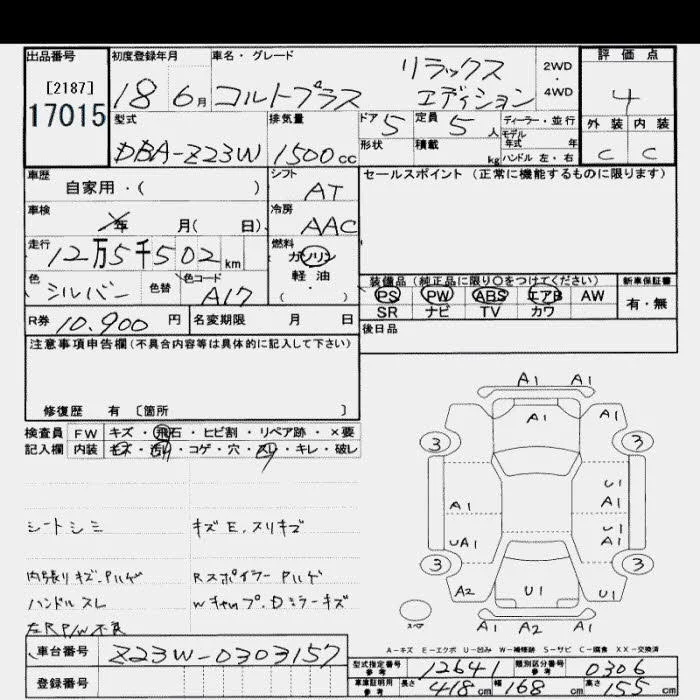 出品番号
[2187]
17015
初度登録年月
18 6月
車名・グレード
コルトプラス リラックスエディション
2WD
・
4WD
評価点
4
外装 内装
C C
型式
DBA-Z23W
排気量
1500cc
ドア 5
定員 5人
ディーラー・並行
モデル年式 年
形状
積載 kg
ハンドル 左・右
車歴
自家用・( )
シフト
AT
セールスポイント(正常に機能するものに限ります)
車検
年 月( 日)
冷房
AAC
走行
12万5千502km
燃料
ガソリン
軽油
( )
色
シルバー
色替
色コード
A17
装備品(純正品に限り○をつけてください)
PS PW ABS エアB AW
SR ナビ TV カワ
新車保証書
有・無
R券 10.900円
名変期限 月 日
後日品
注意事項申告欄(不具合内容等は具体的に記入して下さい)
修復歴 有 〔箇所 〕
検査員 FW キズ・飛石・ヒビ割・リペア跡・×要
記入欄 内装 キズ・汚れ・コゲ・穴・スレ・キレ・破レ
シートシミ
キズE.スリキズ
内張りキズ.ハルゲ
Rスポイラー ハルゲ
ハンドルスレ
Wキャップ.Dミラーキズ
左RP/W不良
A1 A1
A1 A1 A1
3 3
U1
A1 A1
U1
UA1 A1
3 3
A2 U1 U1
スペア
A1 A2 A1
A-キズ E-エクボ U-凹み W-補修跡 S-サビ C-腐食 XX-交換済
車台番号 Z23W-0303157
登録番号
型式指定番号 参考 12641
類別区分番号 参考 0306
車庫証明用 参考 長さ 418cm 幅 168cm 高さ 155cm